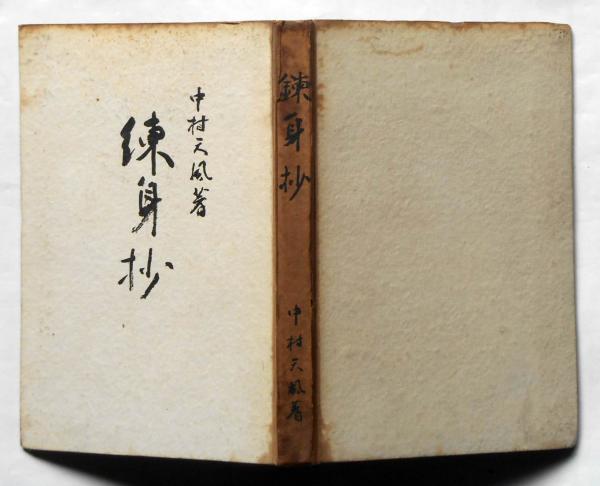 中村天風著
練身抄
錬身抄
中村天風著